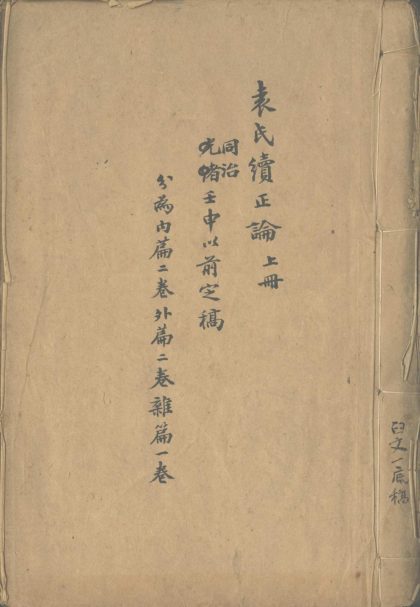 袁氏續正論上冊
同治
光緒壬申以前定稿
分為內篇二卷外篇二卷雜篇一卷
文一底稿